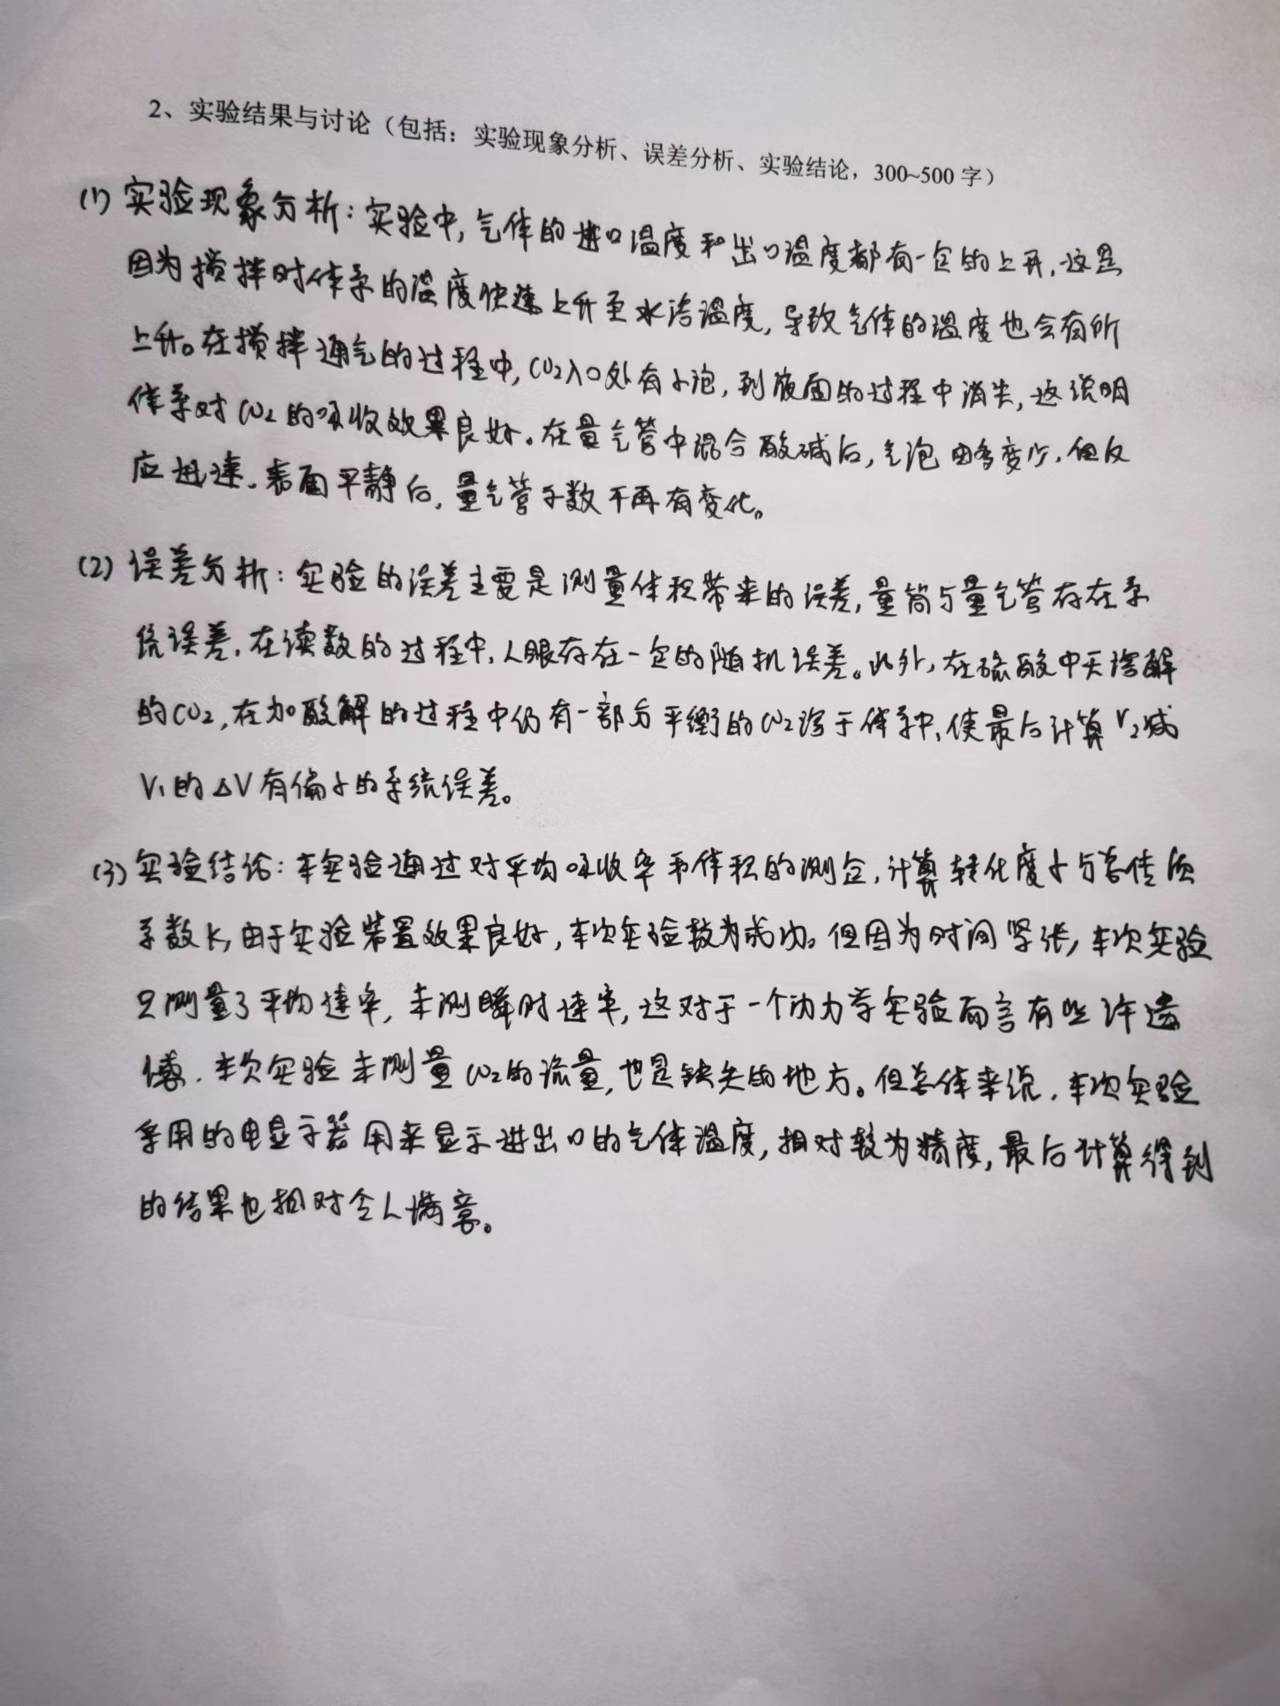 2、实验结果与讨论（包括：实验现象分析、误差分析、实验结论，300~500字）
(1) 实验现象分析：实验中，气体的进口温度和出口温度都有一定的上升，这是
因为搅拌时体系的温度快速上升至水浴温度，导致气体的温度也会有所
上升。在搅拌通气的过程中，CO₂入口处有小泡，到液面的过程中消失，这说明
体系对CO₂的吸收效果良好。在量气管中混合酸碱后，气泡由多变少，但反
应迅速，表面平静后，量气管示数不再有变化。
(2) 误差分析：实验的误差主要是测量体积带来的误差，量筒与量气管存在系
统误差，在读数的过程中，人眼存在一定的随机误差。此外，在硫酸中无溶解
的CO₂，在加酸解的过程中仍有一部分平衡的CO₂溶于体系中，使最后计算V₂减
V₁的ΔV有偏小的系统误差。
(3) 实验结论：本实验通过对平均吸收率和体积的测定，计算转化度α与总传质
系数K，由于实验装置效果良好，本次实验较为成功。但因为时间紧张，本次实验
只测量了平均速率，未测瞬时速率，这对于一个动力学实验而言有些许遗
憾，本次实验未测量CO₂的流量，也是缺失的地方。但总体来说，本次实验
采用的电显示器用来显示进出口的气体温度，相对较为精度，最后计算得到
的结果也相对令人满意。